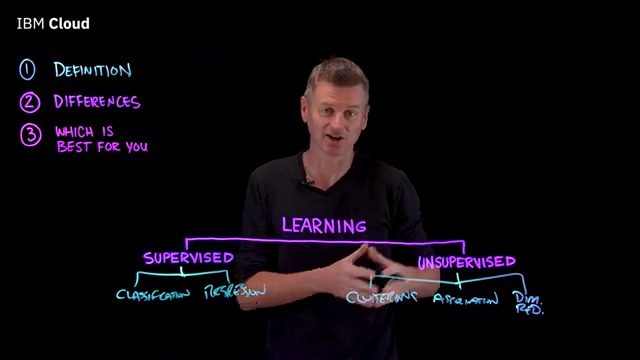 IBM Cloud
1 DEFINITION
2 DIFFERENCES
3 WHICH IS
BEST FOR YOU
LEARNING
SUPERVISED
UNSUPERVISED
CLASSIFICATION REGRESSION
CLUSTERING ASSOCIATION DIM.
RED.